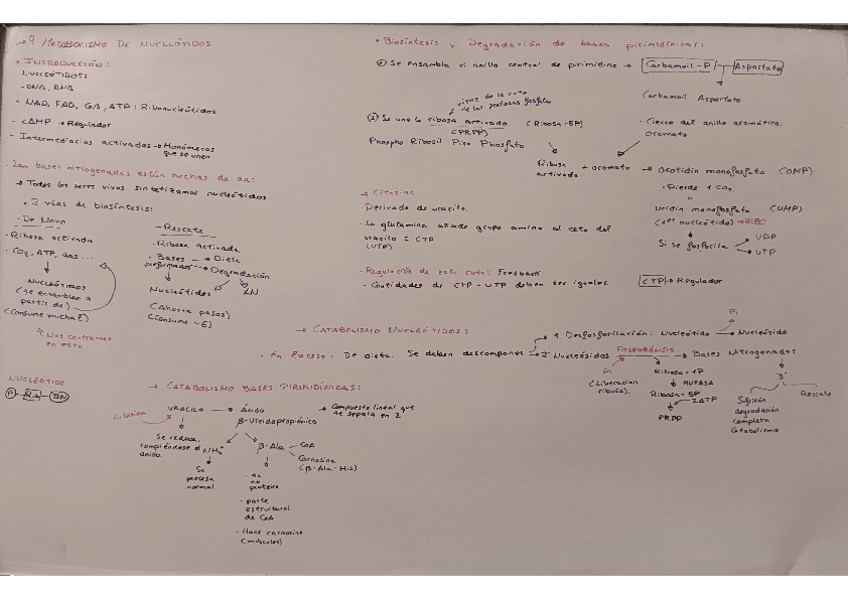 → 9 METABOLISMO DE NUCLEÓTIDOS
• INTRODUCCIÓN:
NUCLEÓTIDOS:
- DNA, RNA
- NAD, FAD, ATP: Ribonucleótidos
- cAMP → Regulador
- Intermediarios activados → que se unen
• Las bases nitrogenadas están hechas de aa:
→ Todos los seres vivos sintetizamos nucleótidos
• 2 vías de biosíntesis:
- De Novo
• Ribosa activada
• CO2, ATP, aas...
Nucleótidos
(Se ensamblan a
partir de)
(Consume mucha E)
Nos centramos
en esto
- Rescate
• Ribosa activada
• Bases → Dieta
preformadas → Degradación
Nucleótidos
(Ahorra pasos)
(Consume - E)
NUCLEÓTIDO
P - Rib - BN
• Biosíntesis y Degradación de bases pirimidínicas:
① Se ensambla el anillo central de pirimidina → Carbamoil-P Aspartato
Carbamoil Aspartato
• Cierre del anillo aromático.
Oromato
viene de la ruta
de las pentosas fosfato
② Se une la ribosa activada (Ribosa-5P)
(PRPP)
Phospho Ribosil Piro Phosfato
Ribosa + oromato → Orotidin monofosfato (OMP)
activada
• Pierde 1 CO2
Uridin monofosfato (UMP)
(1er nucleótido)
Si se fosforila
UDP
UTP
→ Citosina
Derivada de uracilo.
• La glutamina añade grupo amino al ceto del
uracilo = CTP
(UTP)
• Regulación de esta ruta: Feedback
- Cantidades de CTP - UTP deben ser iguales. CTP → Regulador
→ CATABOLISMO NUCLEÓTIDOS:
• En Exceso: De dieta. Se deben descomponer
1. Desfosforilación: Nucleótido → Nucleósido
Pi
2. Nucleósidos FOSFORÓLISIS → Bases Nitrogenadas
Pi
(Liberación
ribosa).
Ribosa-1P
MUTASA
Ribosa-5P
2ATP
PRPP
3.
Sufren
degradación
completa
Catabolismo
Rescate
→ CATABOLISMO BASES PIRIMIDÍNICAS:
Citosina
URACILO → Ácido
β-Ureidopropiónico
→ Compuesto lineal que
se separa en 2
Se reduce,
rompiéndose el
anillo.
NH4+
Se
procesa
normal
β-Ala
CoA
Carnosina
(β-Ala-His)
• aa
no
proteico
• parte
estructural
de CoA
• Hace carnosina
(músculos)